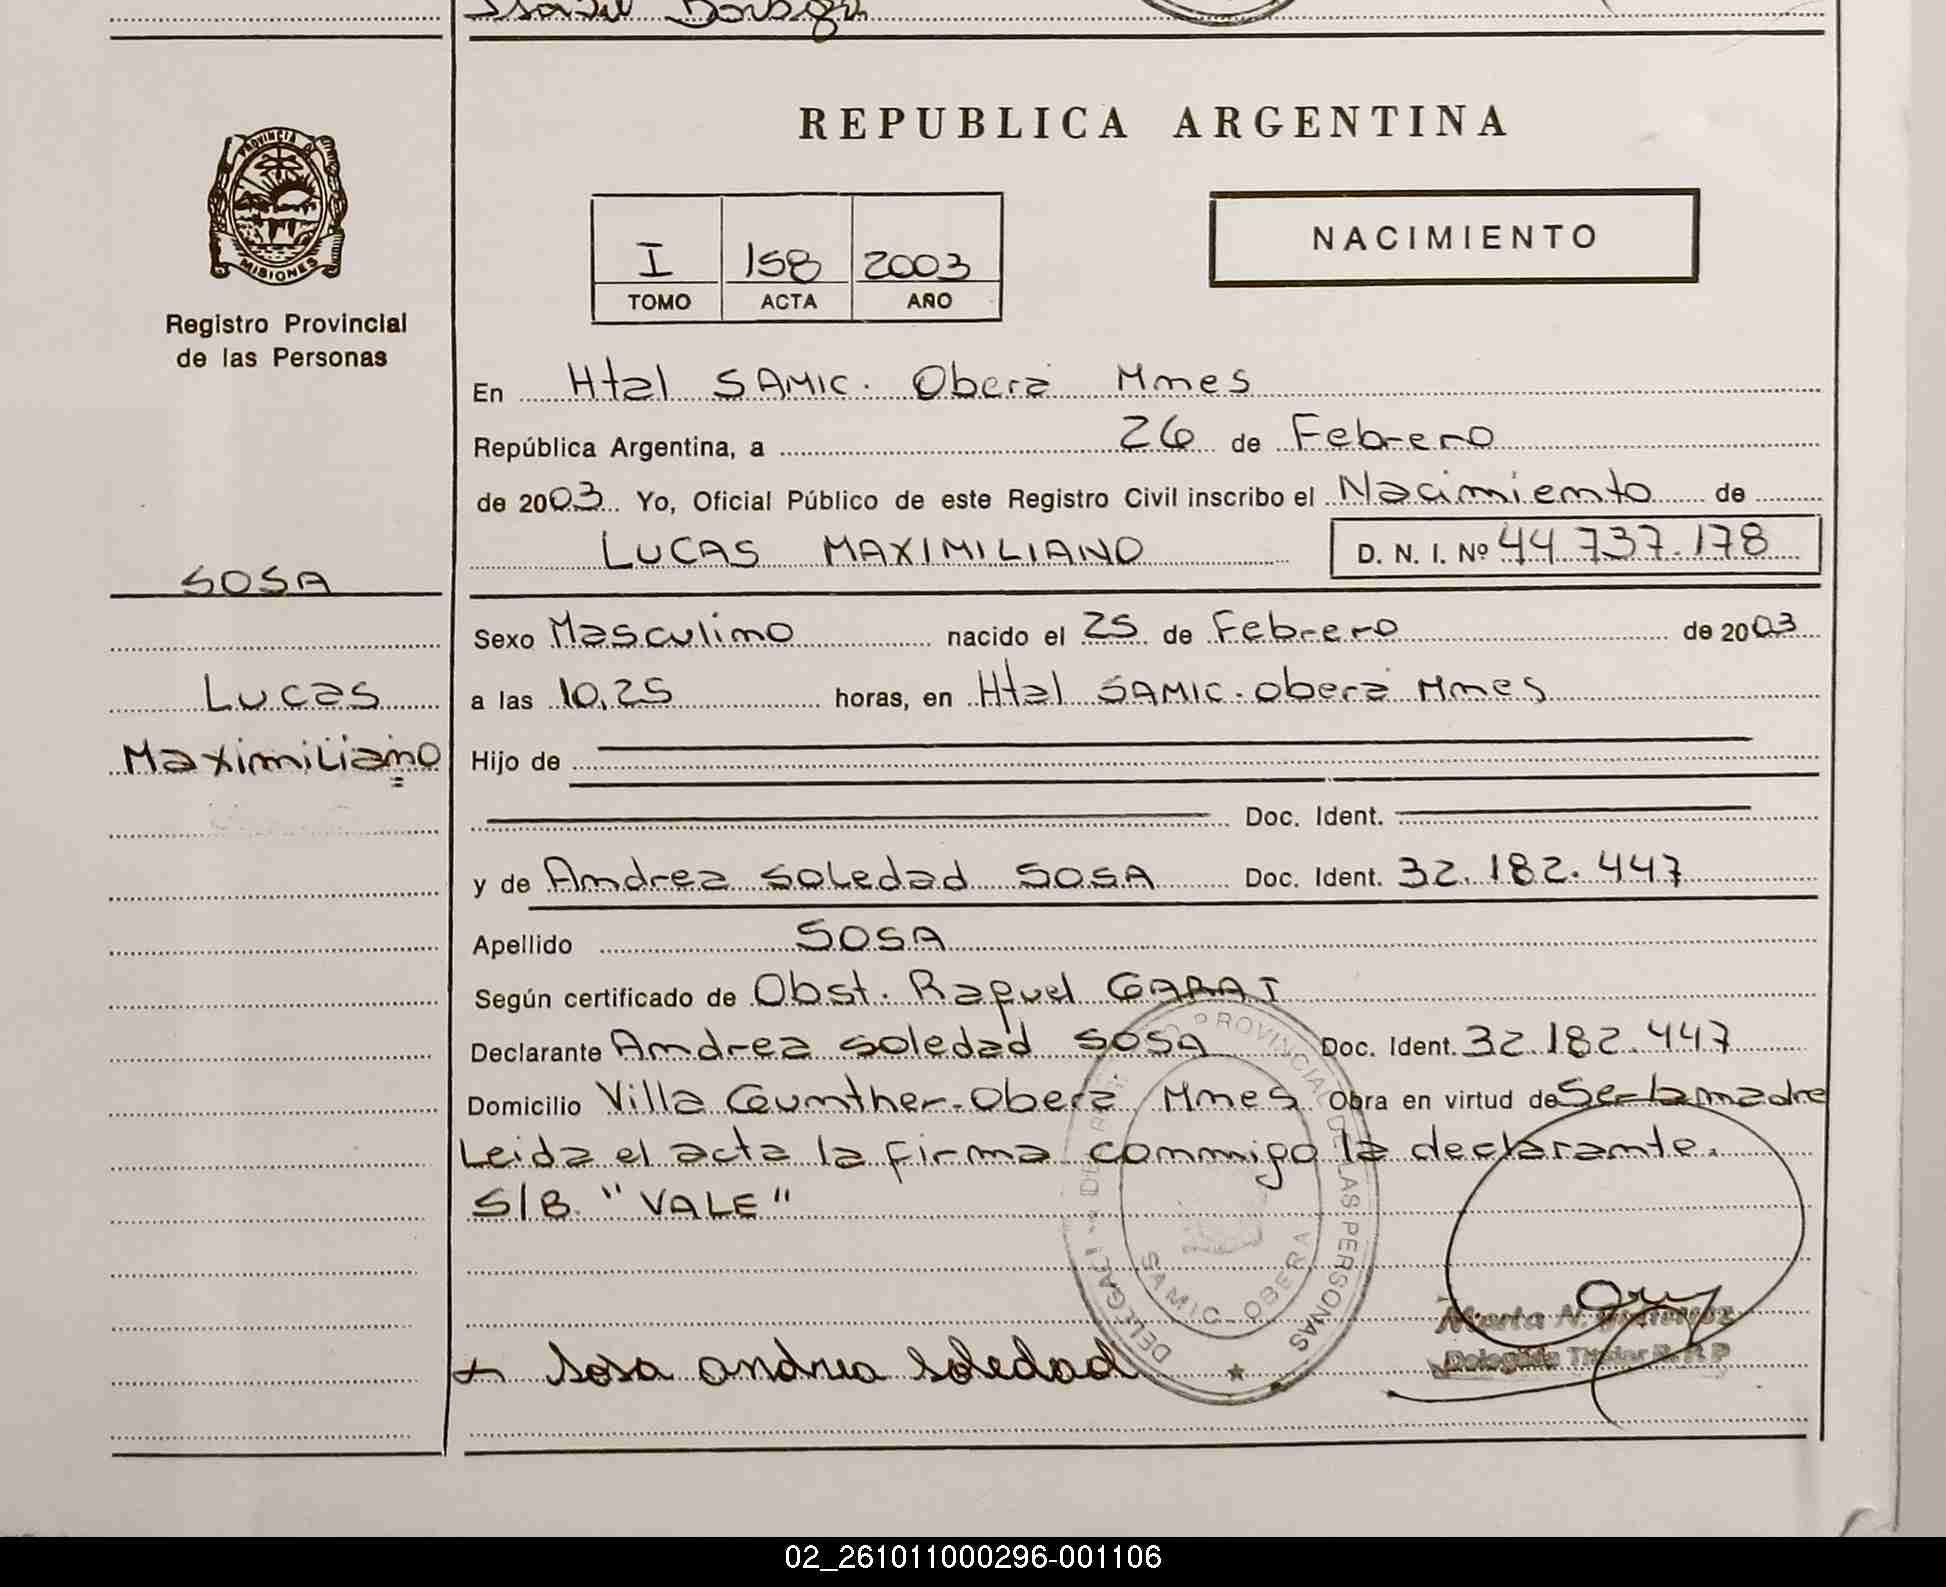 Isabel Borboza
REPUBLICA ARGENTINA
PROVINCIA DE
MISIONES
Registro Provincial
de las Personas
I 158 2003
TOMO ACTA AÑO
NACIMIENTO
En Htal SAMIC. Oberá Mnes
República Argentina, a 26 de Febrero
de 2003 Yo, Oficial Público de este Registro Civil inscribo el Nacimiento de
LUCAS MAXIMILIANO D. N. I. Nº 44.737.178
SOSA
Lucas
Maximiliano
Sexo Masculino nacido el 25 de Febrero de 2003
a las 10,25 horas, en Htal SAMIC. Oberá Mnes
Hijo de
Doc. Ident.
y de Andrea Soledad SOSA Doc. Ident. 32.182.447
Apellido SOSA
Según certificado de Obst. Raquel GARAI
Declarante Andrea Soledad SOSA Doc. Ident. 32.182.447
Domicilio Villa Gunther. Oberá Mnes Obra en virtud de Ser la madre
Leida el acta la firma conmigo la declarante.
S/B. "VALE"
PROVINCIAL DE LAS PERSONAS
SAMIC - OBERA
Marta N.
Delegada Titular R.P.P
+ Sosa andrea Soledad
02_261011000296-001106